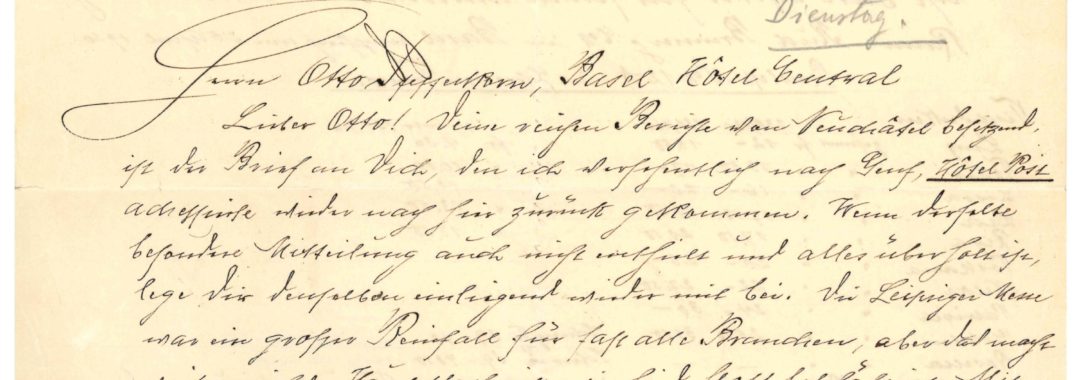 Dienstag.
Herrn Otto Pfefferkorn, Basel Hôtel Central
Lieber Otto! Deine reichen Berichte von Neuchâtel besitzend,
ist der Brief an Dich, den ich versehentlich nach Genf, Hôtel Post
adressirte wieder nach hier zurück gekommen. Wenn derselbe
besondere Mitteilung auch nicht enthielt und alles überholt ist,
lege Dir denselben einliegend wieder mit bei. Die Leipziger Messe
war ein grosser Reinfall für fast alle Branchen, aber das macht